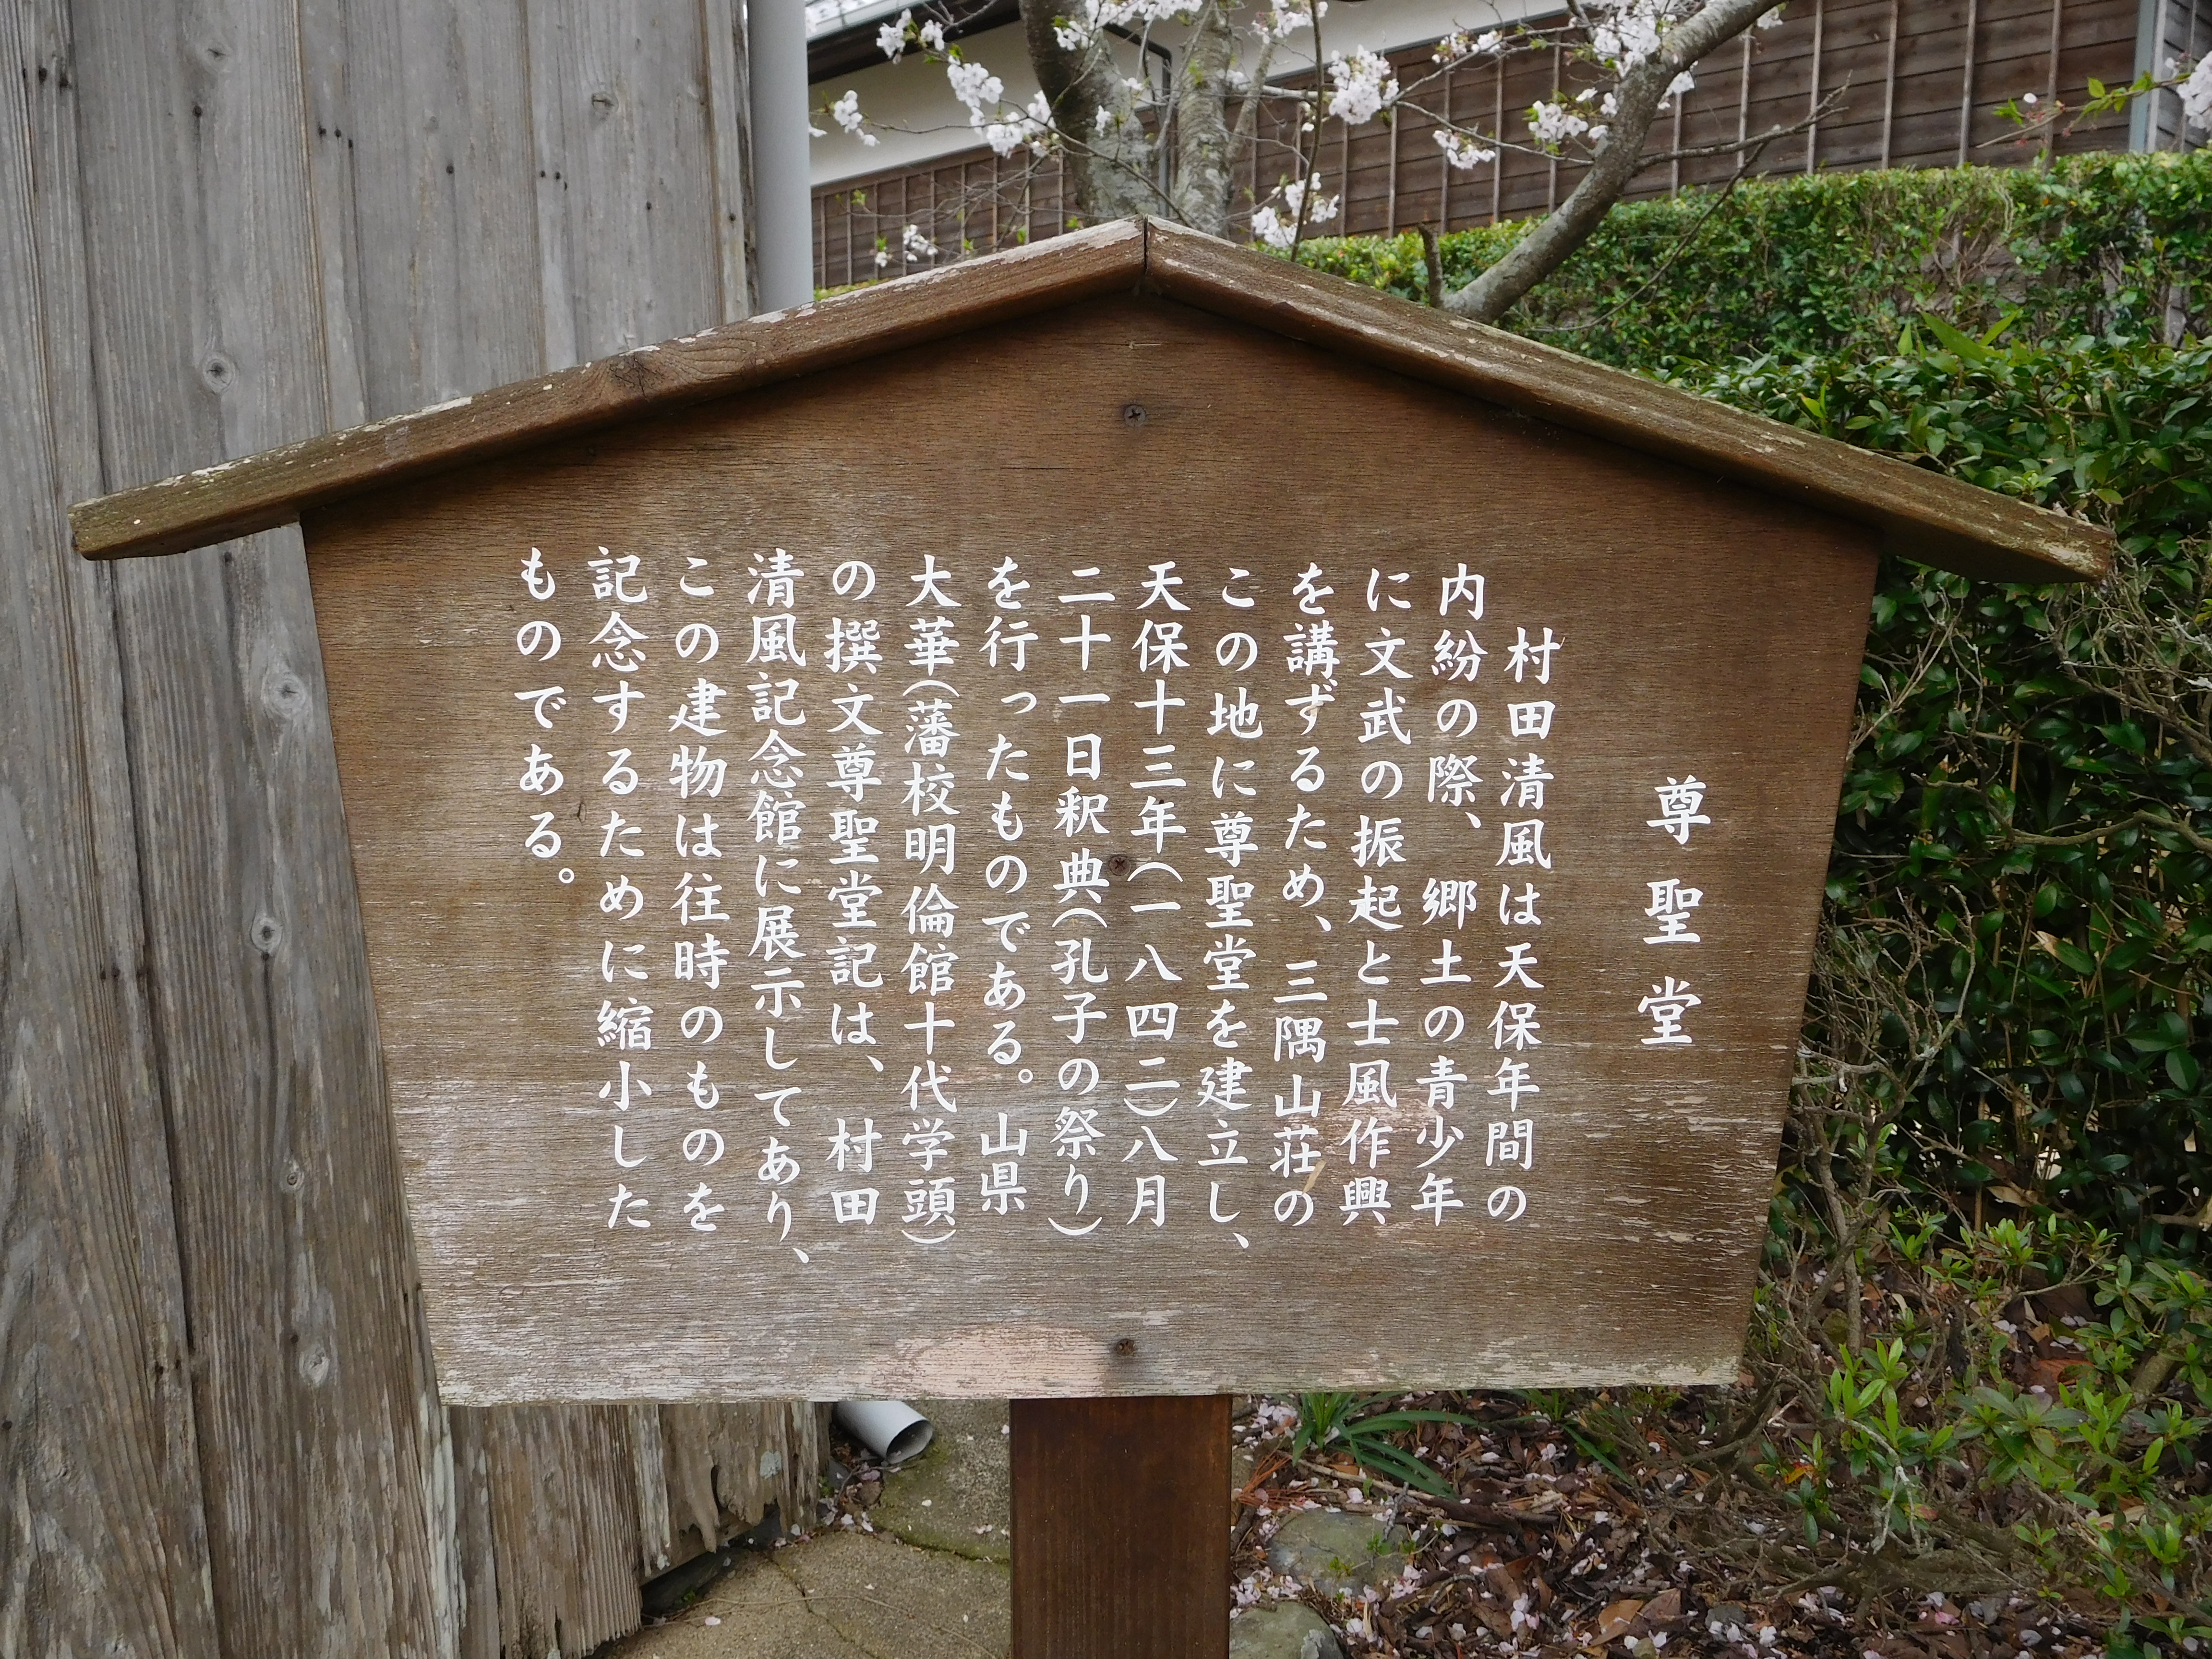 尊聖堂
村田清風は天保年間の
内紛の際、郷土の青少年
に文武の振起と士風作興
を講ずるため、三隅山荘の
この地に尊聖堂を建立し、
天保十三年(一八四二)八月
二十一日釈典(孔子の祭り)
を行ったものである。山県
大華(藩校明倫館十代学頭)
の撰文尊聖堂記は、村田
清風記念館に展示してあり、
この建物は往時のものを
記念するために縮小した
ものである。